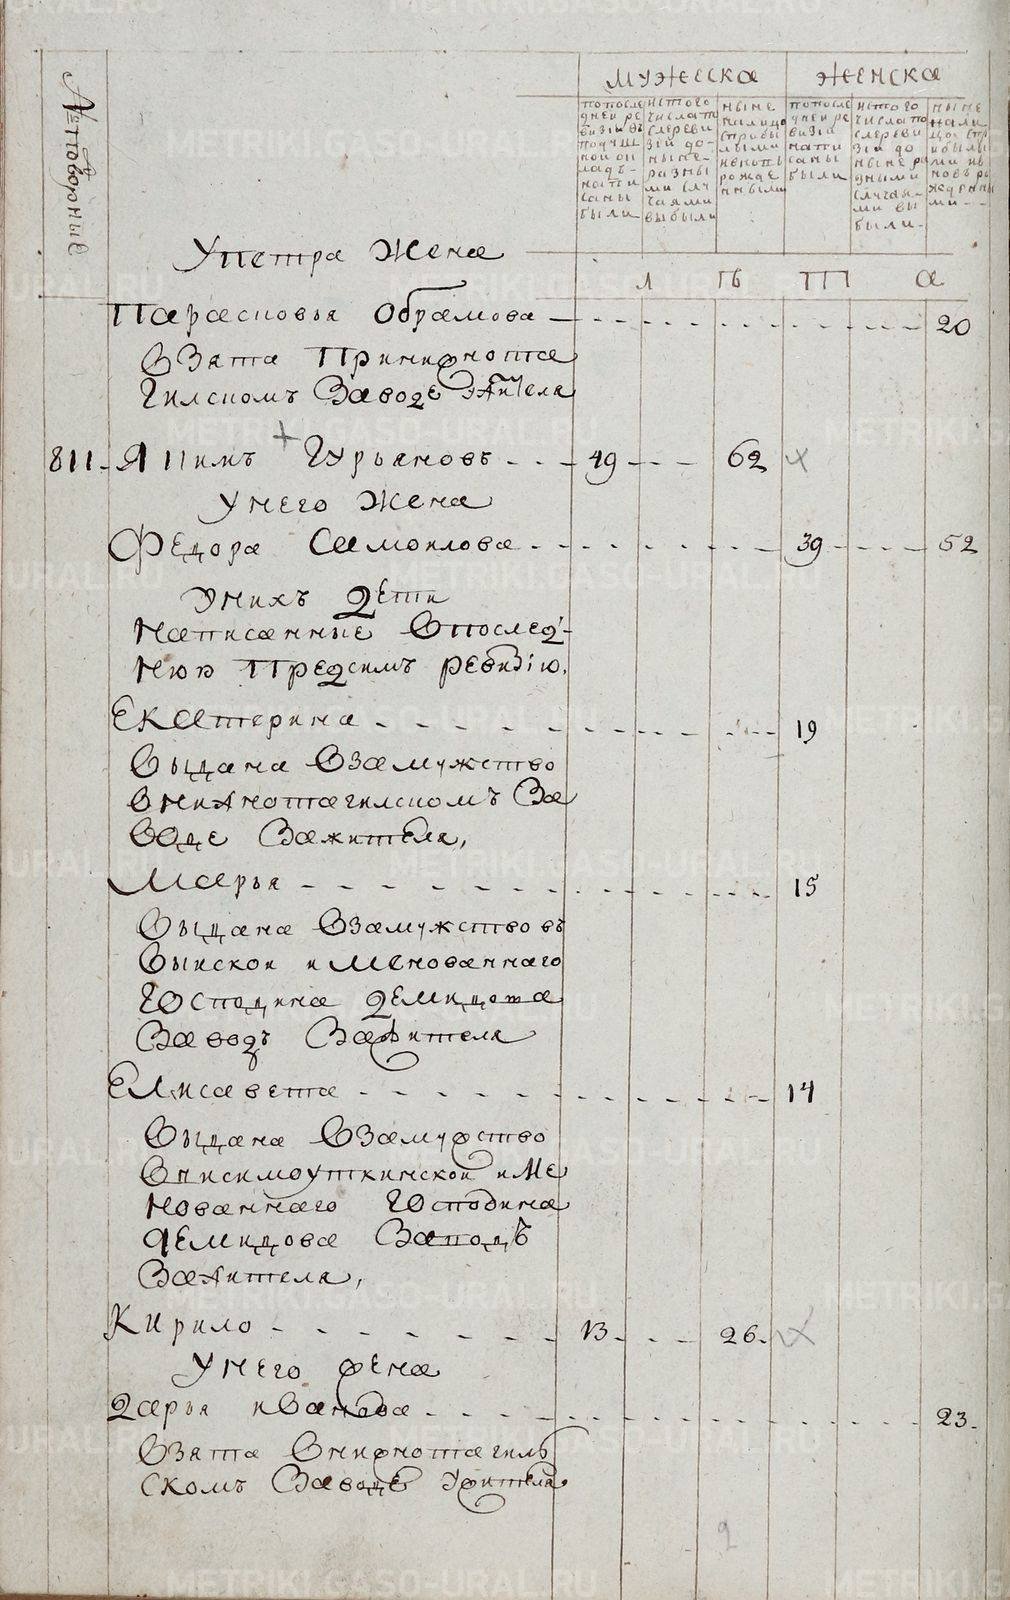 № подворные
МУЖЕСКА
ЖЕНСКА
По после
дней ре
визіи въ
подуш
ной
оклад
напи
саны
были
Ис того
числа по
сле реви
зіи до
ныне
разны
ми слу
чаями
выбыли
Ныне
на лицо
с прибы
лыми
и вновь
рожде
нными
По после
дней ре
визіи
напи
саны
были
Ис того
числа по
сле реви
зіи до
ныне ра
зными
случая
ми вы
были
Ныне
на ли
цо с при
былы
ми и в
новь ро
жденны
ми
У петра жена
Л ѣ т а
Парасковья Обрамова 20
взята при нижнота
гилскомъ заводе у жителя
811. Якимъ Гурьяновъ 49 62
У него жена
Федора Самоилова 39 52
У нихъ дети
написанные в послед-
нюю предсимъ ревизію,
Екатерина 19
выдана взамужство
в нижнотагилскомъ за
воде за жителя,
Марья 15
выдана взамужство въ
выискои имѧнованнаго
Господина демидова
заводъ зажителя
Елисавета 14
выдана взамужство
в висимоуткинской име
нованнаго Господина
демидова заводъ
зажителя,
Кирило 13 26
У него жена
дарья иванова 23
взята в нижнотагиль
скомъ заводе у жителя
METRIKI.GASO-URAL.RU